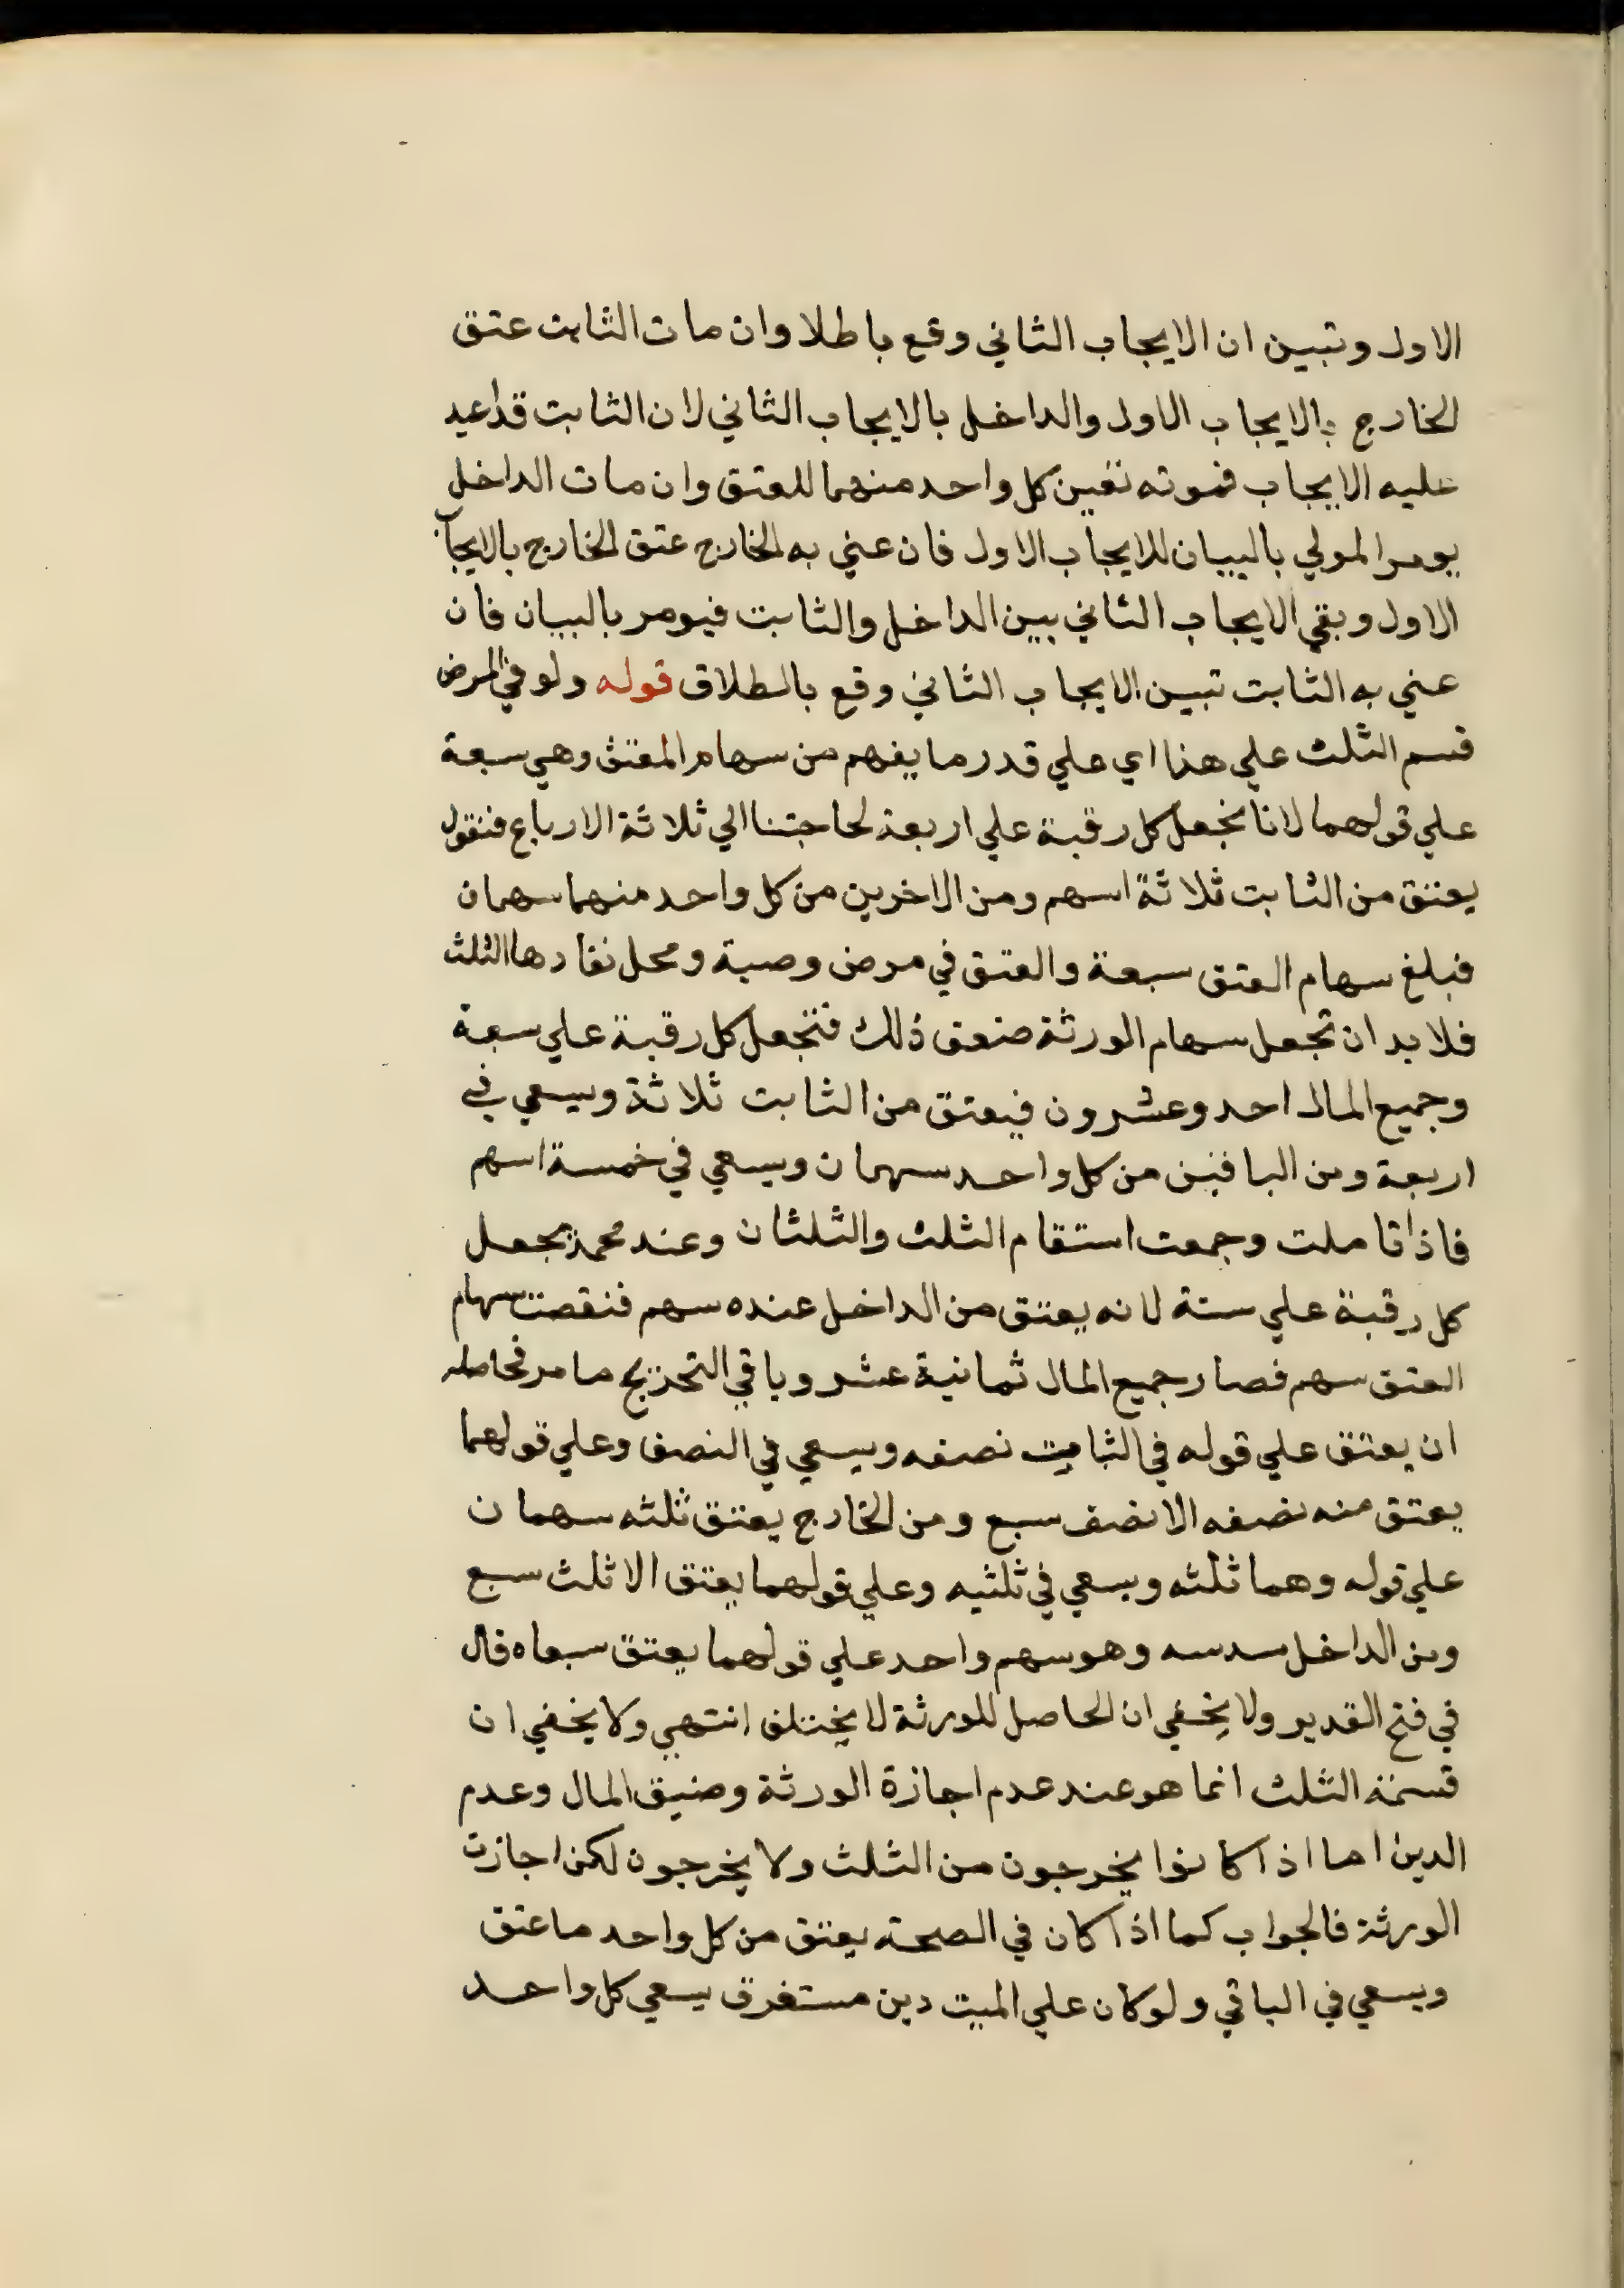 الاول وتبين ان الايجاب الثاني وقع باطلا وان مات الثابت عتق
الخارج بالايجاب الاول والداخل بالايجاب الثاني لان الثابت قد اعيد
عليه الايجاب فموته تعين كل واحد منهما للعتق وان مات الداخل
يومر المولي بالبيان للايجاب الاول فان عني به الخارج عتق الخارج بالايجاب
الاول وبقي الايجاب الثاني بين الداخل والثابت فيومر بالبيان فان
عني به الثابت تبين الايجاب الثاني وقع بالطلاق قوله ولو في المرض
قسم الثلث علي هذا اي علي قدر ما يفهم من سهام المعتق وهي سبعة
علي قولهما لانا نجعل كل رقبة علي اربعة لحاجتنا الي ثلاثة الارباع فنقول
يعتق من الثابت ثلاثة اسهم ومن الاخرين من كل واحد منهما سهمان
فبلغ سهام العتق سبعة والعتق في مرض وصية ومحل نفادها الثلث
فلا بد ان تجعل سهام الورثة ضعف ذلك فتجعل كل رقبة علي سبعة
وجميع المال احد وعشرون فيعتق من الثابت ثلاثة ويسعي في
اربعة ومن الباقين من كل واحد سهمان ويسعي في خمسة اسهم
فاذا تاملت وجمعت استقام الثلث والثلثان وعند محمد يجعل
كل رقبة علي ستة لانه يعتق من الداخل عنده سهم فنقصت سهام
العتق سهم فصار جميع المال ثمانية عشر وباقي التخريج ما مر فحاصله
ان يعتق علي قوله في الثابت نصفه ويسعي في النصف وعلي قولهما
يعتق منه نصفه الا نصف سبع ومن الخارج يعتق ثلثه سهمان
علي قوله وهما ثلثه ويسعي في ثلثيه وعلي قولهما يعتق الا ثلث سبع
ومن الداخل سدسه وهو سهم واحد علي قولهما يعتق سبعاه قال
في فتح القدير ولا يخفي ان الحاصل للورثة لا يختلف انتهي ولا يخفي ان
قسمة الثلث انما هو عند عدم اجازة الورثة وضيق المال وعدم
الدين اما اذا كانوا يخرجون من الثلث ولا يخرجون لكن اجازت
الورثة فالجواب كما اذا كان في الصحة يعتق من كل واحد ما عتق
ويسعي في الباقي ولو كان علي الميت دين مستغرق يسعي كل واحد